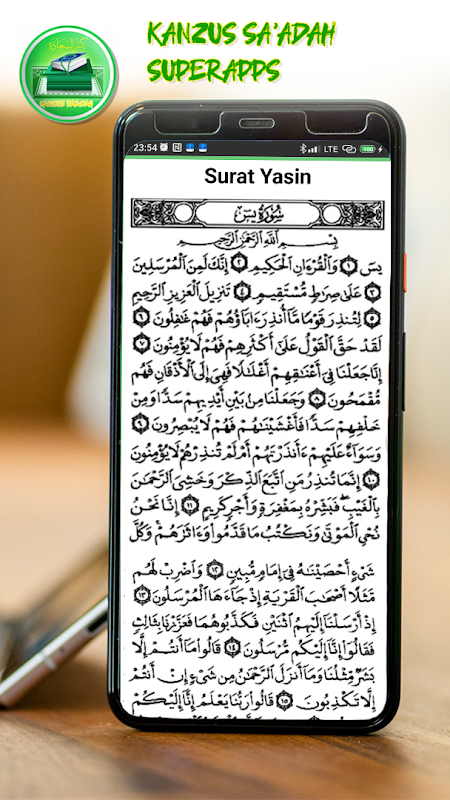 KANZUS SA'ADAH
SUPERAPPS
KANZUS SAADAH
23:54
LTE
Surat Yasin
سُورَةُ يسٓ
بِسْمِ اللَّهِ الرَّحْمَٰنِ الرَّحِيمِ
يسٓ ١ وَالْقُرْءَانِ الْحَكِيمِ ٢ إِنَّكَ لَمِنَ الْمُرْسَلِينَ
٣ عَلَىٰ صِرَاطٍ مُّسْتَقِيمٍ ٤ تَنزِيلَ الْعَزِيزِ الرَّحِيمِ
٥ لِتُنذِرَ قَوْمًا مَّا أُنذِرَ ءَابَاؤُهُمْ فَهُمْ غَٰفِلُونَ ٦
لَقَدْ حَقَّ الْقَوْلُ عَلَىٰ أَكْثَرِهِمْ فَهُمْ لَا يُؤْمِنُونَ ٧
إِنَّا جَعَلْنَا فِي أَعْنَٰقِهِمْ أَغْلَٰلًا فَهِيَ إِلَى الْأَذْقَانِ فَهُم
مُّقْمَحُونَ ٨ وَجَعَلْنَا مِن بَيْنِ أَيْدِيهِمْ سَدًّا وَمِنْ
خَلْفِهِمْ سَدًّا فَأَغْشَيْنَٰهُمْ فَهُمْ لَا يُبْصِرُونَ ٩
وَسَوَاءٌ عَلَيْهِمْ ءَأَنذَرْتَهُمْ أَمْ لَمْ تُنذِرْهُمْ لَا يُؤْمِنُونَ
١٠ إِنَّمَا تُنذِرُ مَنِ اتَّبَعَ الذِّكْرَ وَخَشِيَ الرَّحْمَٰنَ
بِالْغَيْبِ فَبَشِّرْهُ بِمَغْفِرَةٍ وَأَجْرٍ كَرِيمٍ ١١ إِنَّا نَحْنُ
نُحْيِ الْمَوْتَىٰ وَنَكْتُبُ مَا قَدَّمُوا وَءَاثَٰرَهُمْ وَكُلَّ
شَيْءٍ أَحْصَيْنَٰهُ فِي إِمَامٍ مُّبِينٍ ١٢ وَاضْرِبْ لَهُم
مَّثَلًا أَصْحَٰبَ الْقَرْيَةِ إِذْ جَاءَهَا الْمُرْسَلُونَ ١٣
إِذْ أَرْسَلْنَا إِلَيْهِمُ اثْنَيْنِ فَكَذَّبُوهُمَا فَعَزَّزْنَا بِثَالِثٍ
فَقَالُوا إِنَّا إِلَيْكُم مُّرْسَلُونَ ١٤ قَالُوا مَا أَنتُمْ إِلَّا
بَشَرٌ مِّثْلُنَا وَمَا أَنزَلَ الرَّحْمَٰنُ مِن شَيْءٍ إِنْ أَنتُمْ
إِلَّا تَكْذِبُونَ ١٥ قَالُوا رَبُّنَا يَعْلَمُ إِنَّا إِلَيْكُمْ